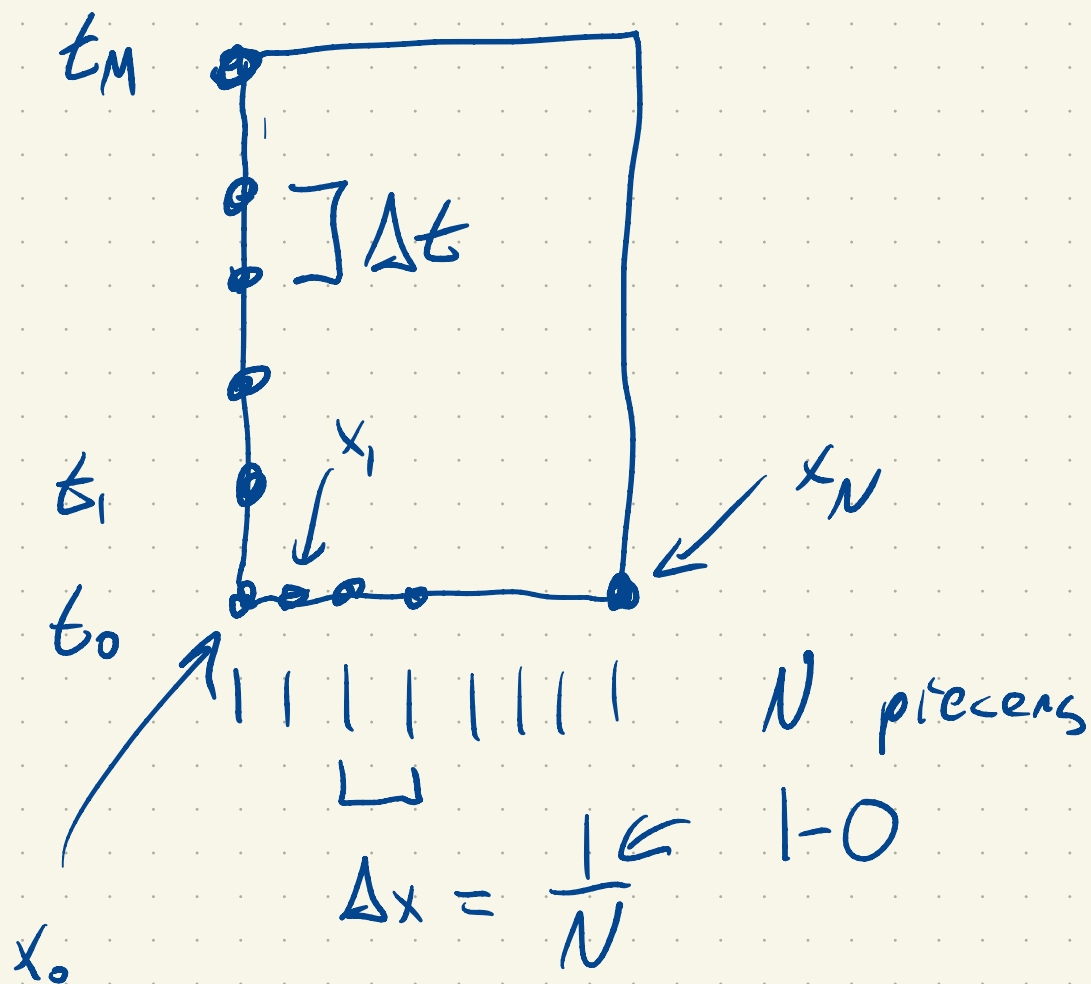 t_M
Δt
x_1
t_1
x_N
t_0
N piecens
Δx = 1/N
1-0
x_0